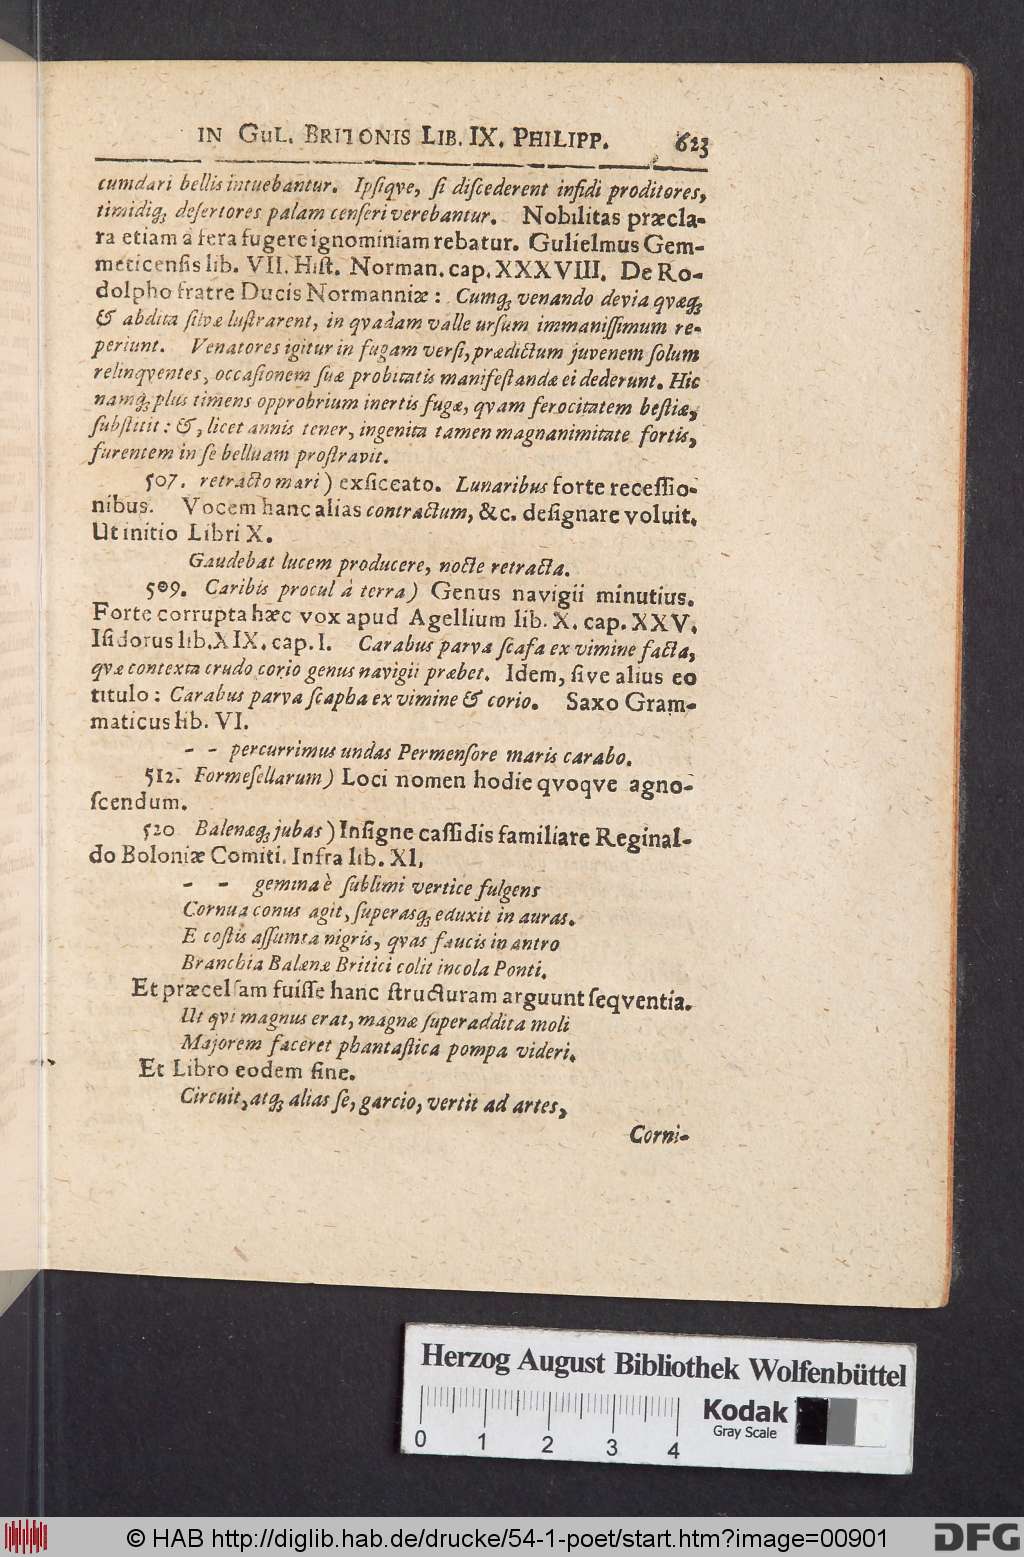 IN GUL. BRITONIS LIB. IX. PHILIPP. 623
cumdari bellis intuebantur. Ipſiqve, ſi diſcederent infidi proditores,
timidiq; deſertores palam cenſeri verebantur. Nobilitas præcla-
ra etiam à fera fugere ignominiam rebatur. Gulielmus Gem-
meticenſis lib. VII. Hiſt. Norman. cap. XXXVIII. De Ro-
dolpho fratre Ducis Normanniæ: Cumq; venando devia qvæq;
& abdita ſilvæ luſtrarent, in qvadam valle urſum immaniſſimum re-
periunt. Venatores igitur in fugam verſi, prædictum juvenem ſolum
relinqventes, occaſionem ſuæ probitatis manifeſtandæ ei dederunt. Hic
namq; plus timens opprobrium inertis fugæ, qvam ferocitatem beſtiæ,
ſubſtitit: &, licet annis tener, ingenita tamen magnanimitate fortis,
furentem in ſe belluam proſtravit.
507. retracto mari) exſiccato. Lunaribus forte receſſio-
nibus. Vocem hanc alias contractum, &c. deſignare voluit.
Ut initio Libri X.
Gaudebat lucem producere, nocte retracta.
509. Caribis procul à terra) Genus navigii minutius.
Forte corrupta hæc vox apud Agellium lib. X. cap. XXV.
Iſidorus lib. XIX. cap. I. Carabus parva ſcafa ex vimine facta,
qvæ contexta crudo corio genus navigii præbet. Idem, ſive alius eo
titulo: Carabus parva ſcapha ex vimine & corio. Saxo Gram-
maticus lib. VI.
- - percurrimus undas Permenſore maris carabo.
512. Formeſellarum) Loci nomen hodie qvoqve agno-
ſcendum.
520 Balenæq; jubas) Inſigne caſſidis familiare Reginal-
do Boloniæ Comiti. Infra lib. XI.
- - gemina è ſublimi vertice fulgens
Cornua conus agit, ſuperasq; eduxit in auras.
E coſtis aſſumta nigris, qvas faucis in antro
Branchia Balænæ Britici colit incola Ponti.
Et præcelſam fuiſſe hanc ſtructuram arguunt ſeqventia.
Ut qvi magnus erat, magnæ ſuperaddita moli
Majorem faceret phantaſtica pompa videri.
Et Libro eodem fine.
Circuit, atq; alias ſe, garcio, vertit ad artes,
Corni-
Herzog August Bibliothek Wolfenbüttel
Kodak
Gray Scale
0 1 2 3 4
© HAB http://diglib.hab.de/drucke/54-1-poet/start.htm?image=00901
DFG